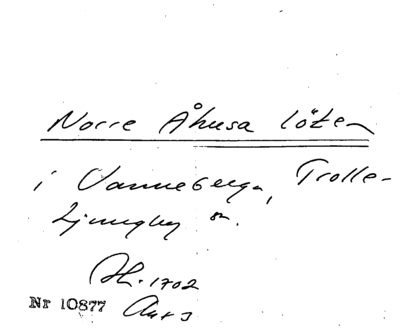 Norre Åhusa löten
i Vanneberga, Trolle-
Ljungby sn.
1702
Nr 10877